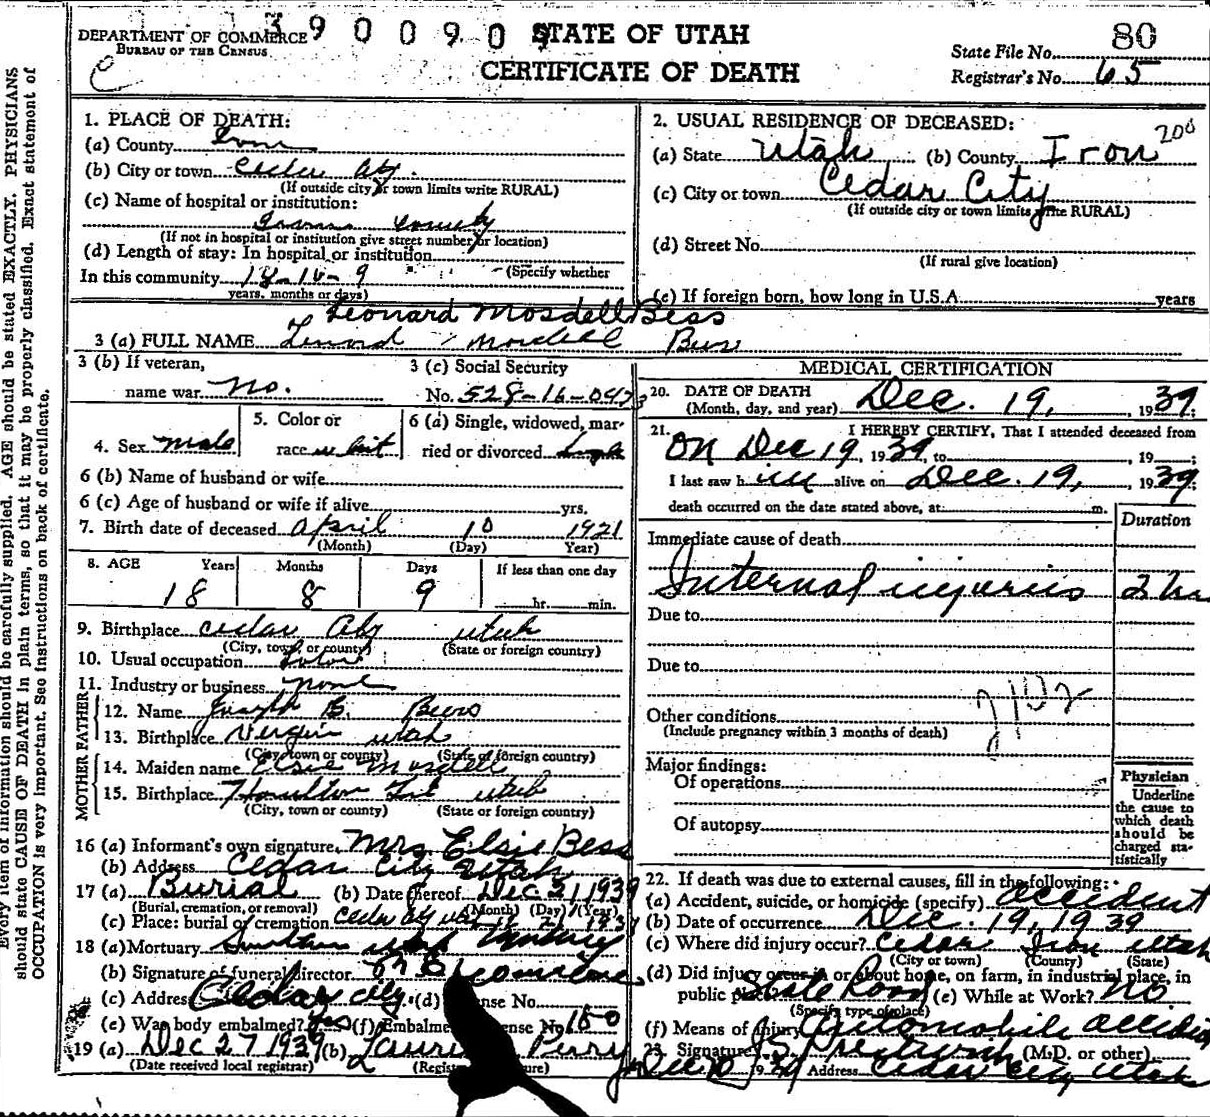 390090
DEPARTMENT OF COMMERCE
BUREAU OF THE CENSUS
C
STATE OF UTAH
CERTIFICATE OF DEATH
80
State File No.
Registrar's No. 65
Every item of information should be carefully supplied. AGE should be stated EXACTLY. PHYSICIANS
should state CAUSE OF DEATH in plain terms, so that it may be properly classified. Exact statement of
OCCUPATION is very important. See instructions on back of certificate.
1. PLACE OF DEATH:
(a) County Iron
(b) City or town Cedar City.
(If outside city or town limits write RURAL)
(c) Name of hospital or institution:
Iron County
(If not in hospital or institution give street number or location)
(d) Length of stay: In hospital or institution
(Specify whether
In this community
years, months or days)
2. USUAL RESIDENCE OF DECEASED:
200
(a) State Utah (b) County Iron
(c) City or town Cedar City
(If outside city or town limits write RURAL)
(d) Street No.
(If rural give location)
(e) If foreign born, how long in U.S.A. years
Leonard Mosdell Bess
3 (a) FULL NAME Leonard Mosdell Bess
3 (b) If veteran,
name war No.
3 (c) Social Security
No. 528-16-0473
4. Sex Male
5. Color or
race whit
6 (a) Single, widowed, mar-
ried or divorced Single
6 (b) Name of husband or wife
6 (c) Age of husband or wife if alive yrs.
7. Birth date of deceased April 10 1921
(Month) (Day) Year)
8. AGE Years Months Days If less than one day
18 8 9 hr. min.
9. Birthplace Cedar City Utah
(City, town, or county) (State or foreign country)
10. Usual occupation
11. Industry or business none
FATHER
12. Name Joseph B. Bess
13. Birthplace Virgin Utah
(City, town or county) (State of foreign country)
MOTHER
14. Maiden name Elsie Mosdell
15. Birthplace Hamilton Fort Utah
(City, town or county) (State or foreign country)
16 (a) Informant's own signature Mrs Elsie Bess
(b) Address Cedar City Utah
17 (a) Burial (b) Date thereof Dec 21 1939
(Burial, cremation, or removal) (Month) (Day) (Year)
(c) Place: burial or cremation Cedar City Utah
18 (a) Mortuary Southern Utah Mortuary
(b) Signature of funeral director
(c) Address Cedar City. (d) License No.
(e) Was body embalmed? Yes (f) Embalmer License No 150
19 (a) Dec 27 1939 (b) Perry
(Date received local registrar) (Registrar's signature)
MEDICAL CERTIFICATION
20. DATE OF DEATH
(Month, day, and year) Dec. 19, 1939;
21. I HEREBY CERTIFY, That I attended deceased from
on Dec 19, 1939, to , 19 ;
I last saw him alive on Dec. 19, 1939;
death occurred on the date stated above, at m.
Duration
Immediate cause of death
Internal injuries 2 hrs
Due to
Due to
Other conditions
(Include pregnancy within 3 months of death)
Major findings:
Of operations
Of autopsy
Physician
Underline
the cause to
which death
should be
charged sta-
tistically
22. If death was due to external causes, fill in the following:
(a) Accident, suicide, or homicide (specify) accident
(b) Date of occurrence Dec. 19, 1939
(c) Where did injury occur? Cedar Iron Utah
(City or town) (County) (State)
(d) Did injury occur in or about home, on farm, in industrial place, in
public place? State Road (e) While at Work? no
(Specify type of place)
(f) Means of Injury Automobile accident
23. Signature (M.D. or other)
Address Cedar City Utah